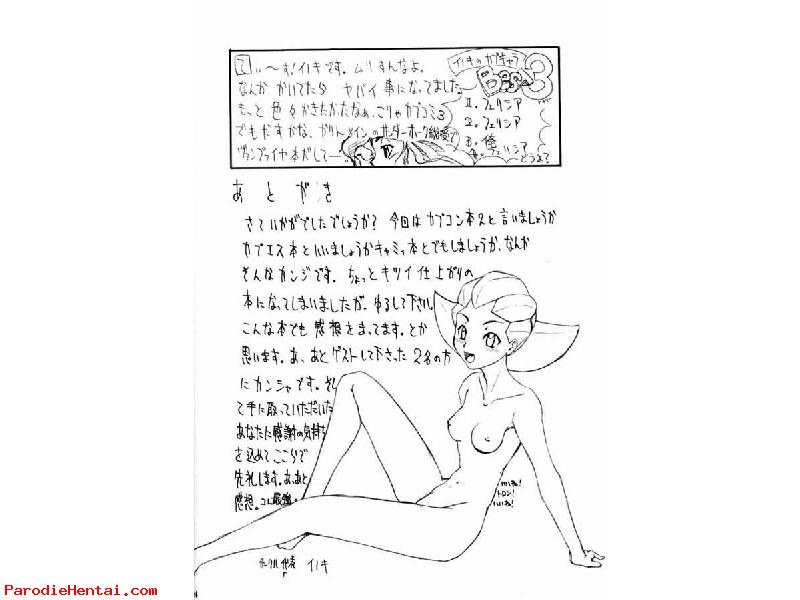 てぃ〜す!イノキです。ムリすんなよ。
なんか かいてたら ヤバイ事になってました。
もっと色々かきたかったなぁ、こりゃカプコミ3
でもだすかな、かりん メインの サンダーホーク総受で
ヴァンパイヤ本だして—
イノキのカプキャラ
Best3
1. フェリシア
2. フェリシア
3. 俺
フェリシア
どうよ?
あとがき
さていかがでしたでしょうか? 今回はカプコン本2と言いましょうか
カプエス本といいましょうかキャミィ本とでもしましょうか、なんか
そんなカンジです。ちょっとキツイ仕上がりの
本になってしまいましたが、ゆるして下さい。
こんな本でも感想をまってます。とか
思います。あ、あとゲストして下さった2名の方
にカンシャです。そし
て手に取っていただいた
あなたに感謝の気持ち
を込めてここらで
失礼します。あ、あと
感想。コレ最強。
いいね!
トロン!
いいね!
サークル代表 イノキ
ParodieHentai.com